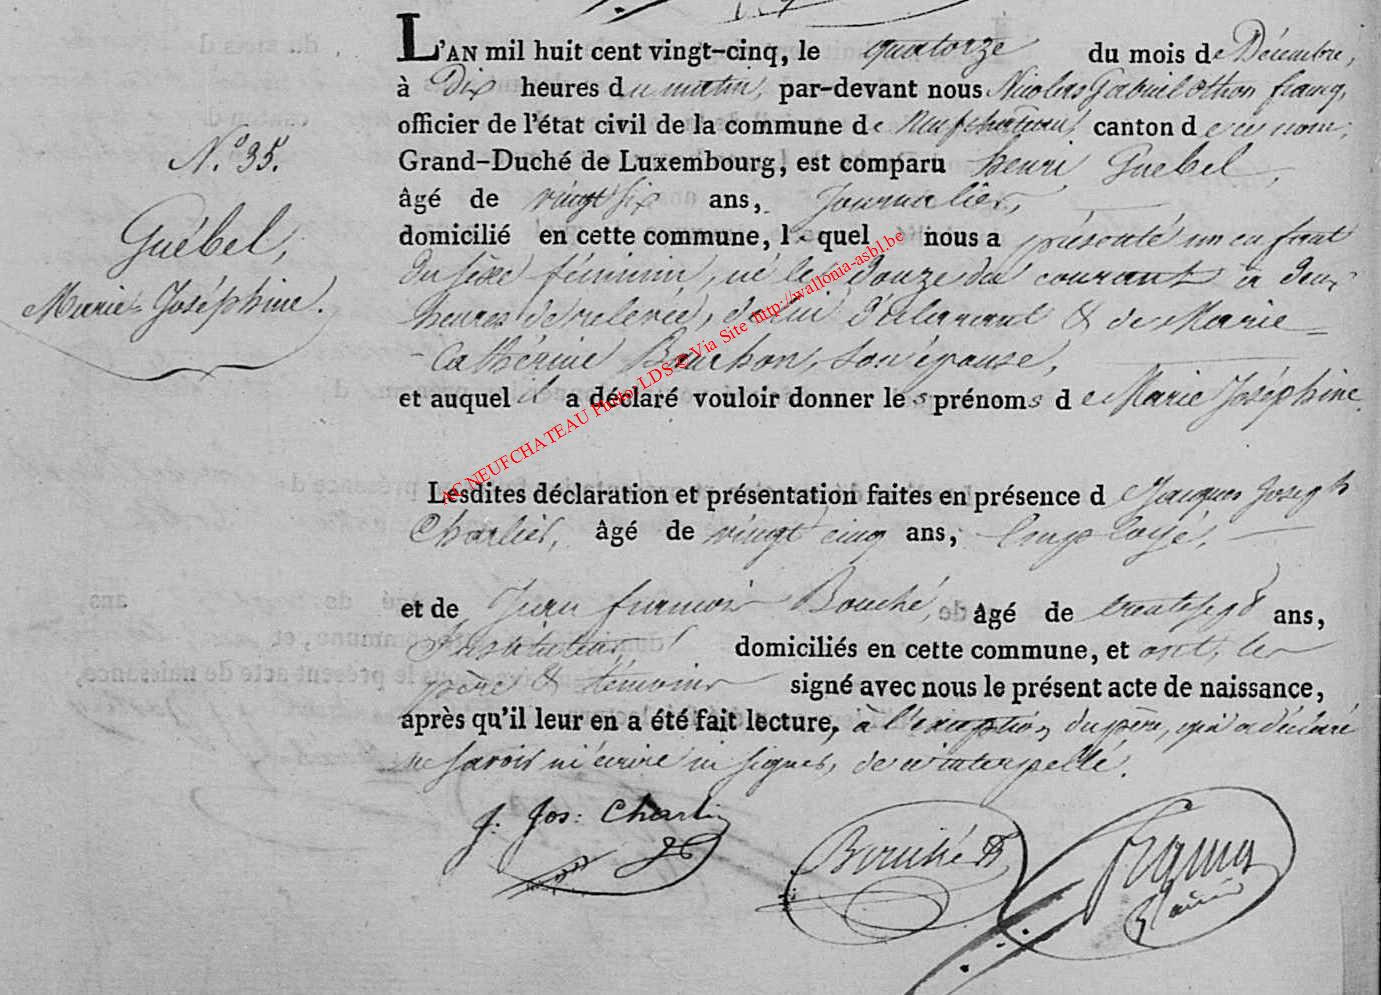 L'AN mil huit cent vingt-cinq, le quatorze du mois de Décembre,
à Dix heures du matin, par-devant nous Nicolas Gabriel Othon francq,
officier de l'état civil de la commune de Neufchateau, canton de ce nom,
Grand-Duché de Luxembourg, est comparu henri Guebel,
âgé de vingt six ans, Journalier,
domicilié en cette commune, lequel nous a présenté un enfant
du sexe féminin, né le douze du courant à deux
heures de relevée, de lui déclarant & de Marie
Cathérine Bouchon, son épouse,
et auquel il a déclaré vouloir donner les prénoms de Marie Joséphine.
Lesdites déclaration et présentation faites en présence de Jacques Joseph
Charlier, âgé de vingt cinq ans,
et de Jean françois Bouché, âgé de trente sept ans,
Instituteur domiciliés en cette commune, et ont, les
père & témoins signé avec nous le présent acte de naissance,
après qu'il leur en a été fait lecture, à l'exception du père, qui a déclaré
ne savoir ni écrire ni signer, de ce interpellé.
J. Jos: Charlier
Bouché
Francq
N.° 35.
Guébel,
Marie Joséphine.
AC NEUFCHATEAU Photo LDS © Via Site http://wallonia-asbl.be